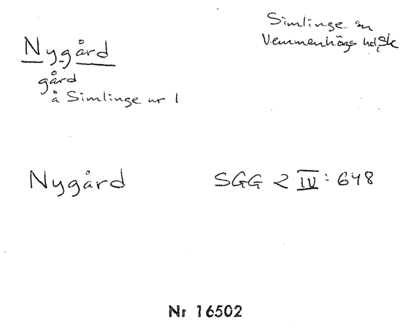 Simlinge sn
Vemmenhögs hd, Sk
Nygård
gård
å Simlinge nr 1
Nygård SGG 2 IV: 648
Nr 16502